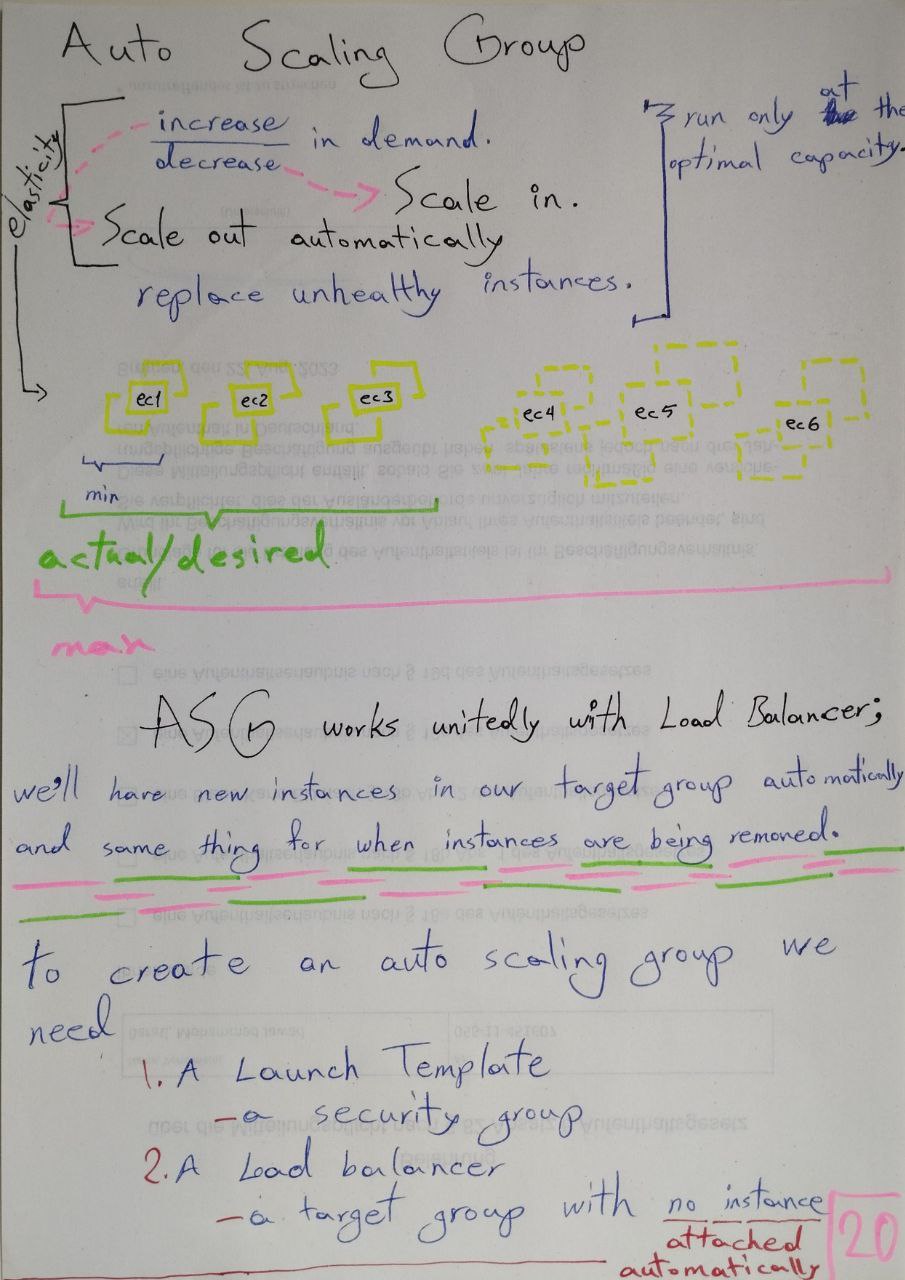 Auto Scaling Group
elasticity
increase
decrease
in demand.
Scale in.
Scale out automatically
replace unhealthy instances.
run only at the
optimal capacity.
ec1
ec2
ec3
ec4
ec5
ec6
min
actual/desired
max
ASG works unitedly with Load Balancer;
we'll have new instances in our target group automatically
and same thing for when instances are being removed.
to create an auto scaling group we
need
1. A Launch Template
- a security group
2. A Load balancer
- a target group with no instance
attached
automatically
20